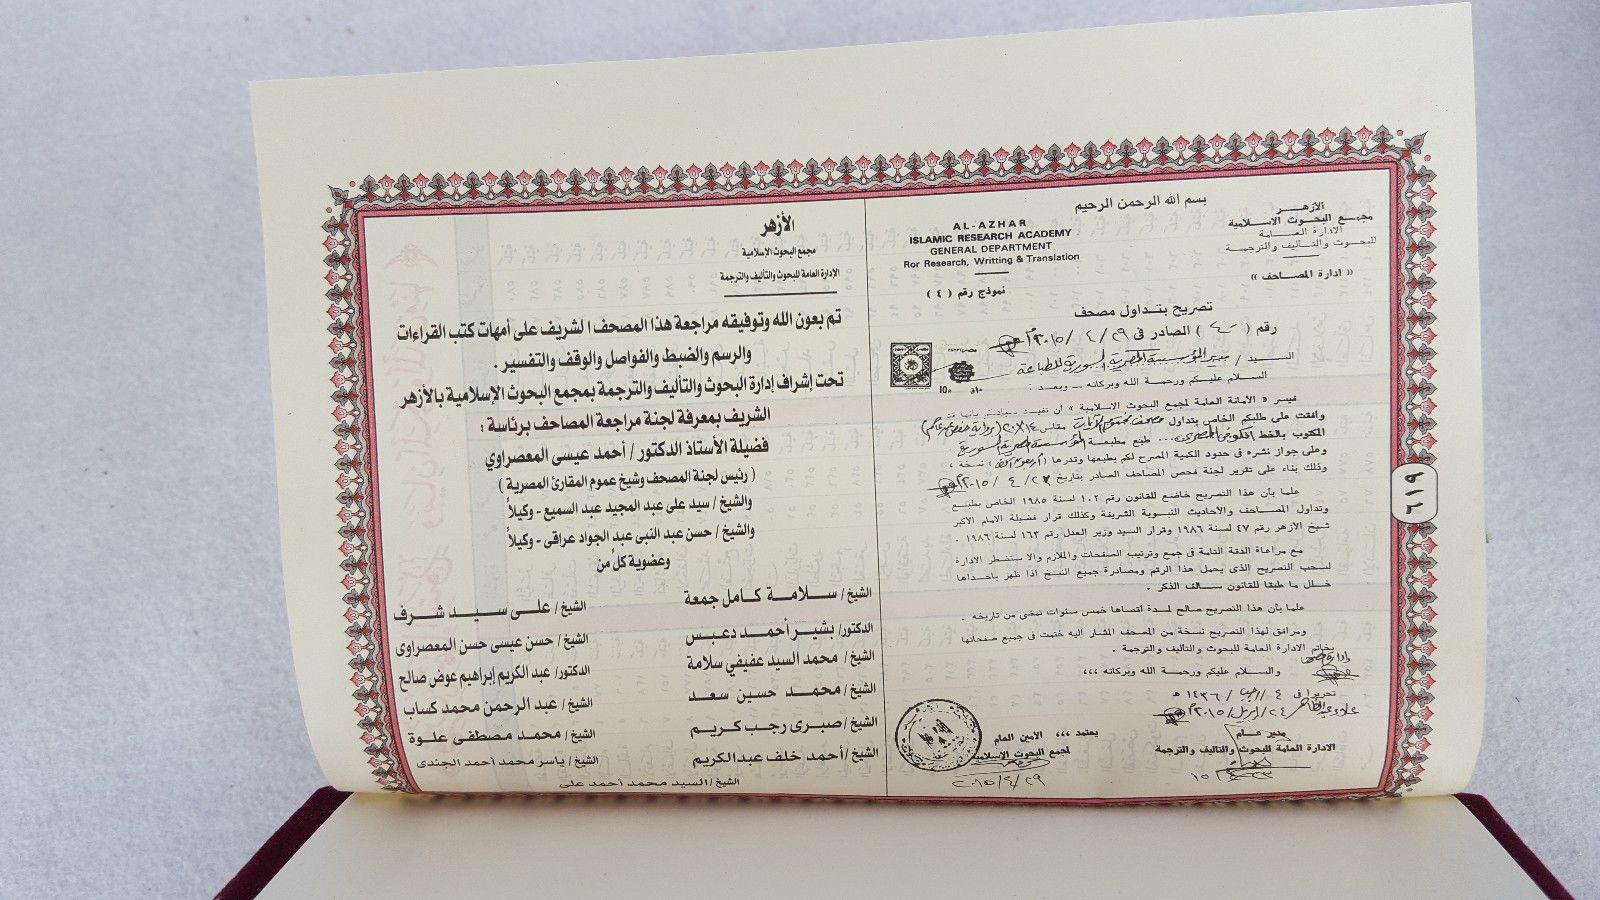 بسم الله الرحمن الرحيم
الأزهـــر
مجمـع البحـوث الاسـلامية
الادارة العـــامة
للبحـوث والتـأليف والترجمـة
« ادارة المصـــاحف »
AL-AZHAR
ISLAMIC RESEARCH ACADEMY
GENERAL DEPARTMENT
Ror Research, Writting & Translation
نموذج رقم ( ٤ )
تصريح بتداول مصحف
رقم ( ٤ ) الصادر فى ٢٩ / ٤ / ٢٠١٥م
السـيد / مدير المؤسسة المصرية السورية للطباعة
السلام عليكم ورحمة الله وبركاته ــ وبعـد :
فيسر « الأمانة العامة لمجمع البحوث الاسلامية » أن تفيد
وافقت على طلبكم الخاص بتداول مصحف مقاس ١٤×٢٠ (برواية حفص عن عاصم)
المكتوب بالخط طبع بمطبعة المؤسسة المصرية السورية
وعلى جواز نشره فى حدود الكمية المصرح لكم بطبعها وقدرها ( ) نسخة ،
وذلك بناء على تقرير لجنة فحص المصاحف الصادر بتاريخ ٢٣ / ٤ / ٢٠١٥م
علما بأن هذا التصريح خاضع للقانون رقم ١٠٢ لسنة ١٩٨٥ الخاص بطبـع
وتداول المصاحف والأحاديث النبوية الشريفة وكذلك قرار فضيلة الامام الأكبر
شيخ الأزهر رقم ٤٧ لسنة ١٩٨٦ وقرار السيد وزير العدل رقم ١٦٣ لسنة ١٩٨٦ .
مع مراعاة الدقة التامة فى جمع وترتيب الصفحات والملازم والا ستضطر الادارة
لسحب التصريح الذى يحمل هذا الرقم ومصادرة جميع النسخ اذا ظهر باحداها
خلل ما طبقا للقانون سالف الذكر .
علما بأن هذا التصريح صالح لمدة أقصاها خمس سنوات تمضى من تاريخه .
ومرافق لهذا التصريح نسخة من المصحف المشار اليه ختمت فى جميع صفحاتها
بخاتم الادارة العامة للبحوث والتأليف والترجمة .
والسلام عليكم ورحمة الله وبركاته ،،،
تحريرا فى ٤ / / ١٤٣٦ هـ
٢٤ / ابريل / ٢٠١٥م
مدير عـــام
الادارة العامة للبحوث والتأليف والترجمة
يعتمد ،،، الأمين العام
لمجمع البحوث الاسلامية
٢٠١٥/٤/٢٩
٦١٩
الأزهر
مجمع البحوث الإسلامية
الإدارة العامة للبحوث والتأليف والترجمة
تم بعون الله وتوفيقه مراجعة هذا المصحف الشريف على أمهات كتب القراءات
والرسم والضبط والفواصل والوقف والتفسير .
تحت إشراف إدارة البحوث والتأليف والترجمة بمجمع البحوث الإسلامية بالأزهر
الشريف بمعرفة لجنة مراجعة المصاحف برئاسة :
فضيلة الأستاذ الدكتور / أحمد عيسى المعصراوي
( رئيس لجنة المصحف وشيخ عموم المقارئ المصرية )
والشيخ / سيد على عبد المجيد عبد السميع - وكيلاً
والشيخ / حسن عبد النبى عبد الجواد عراقى - وكيلاً
وعضوية كلٌ من
الشيخ / سـلامـة كـامل جمعة
الشيخ / علـى سـيـد شـرف
الدكتور / بشيـر أحمـد دعبـس
الشيخ / حسن عيسى حسن المعصراوى
الشيخ / محمد السيد عفيفي سلامة
الدكتور / عبد الكريم إبراهيم عوض صالح
الشيخ / محمـد حسين سعد
الشيخ / عبد الرحمن محمد كساب
الشيخ / صبـرى رجـب كـريم
الشيخ / محمد مصطفى علـوة
الشيخ / أحمد خلف عبدالكريم
الشيخ / ياسر محمد أحمد الجندى
الشيخ / السيد محمد أحمد على